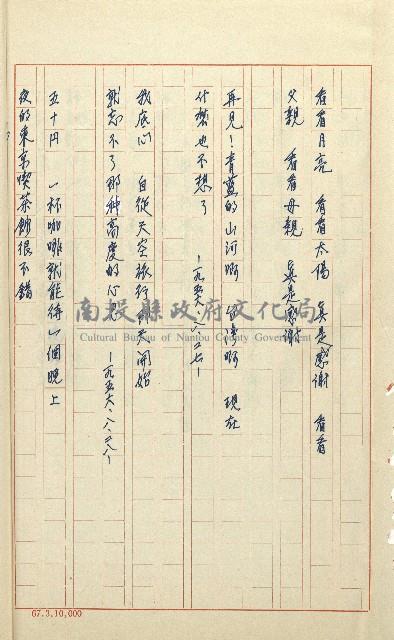 看看月亮 看看太陽 真是感謝 看看
父親 看看母親 真是感謝
再見!青藍的山河啊 現在
什麼也不想了
—一九五六、八、二七—
我底心 自從天空旅行 開始
就忘不了那种高度的心
—一九五六、八、二八—
五十円 一杯咖啡就能待一個晚上
夜的東京喫茶館很不錯
南投縣政府文化局
Cultural Bureau of Nantou County Government
67.3.10,000